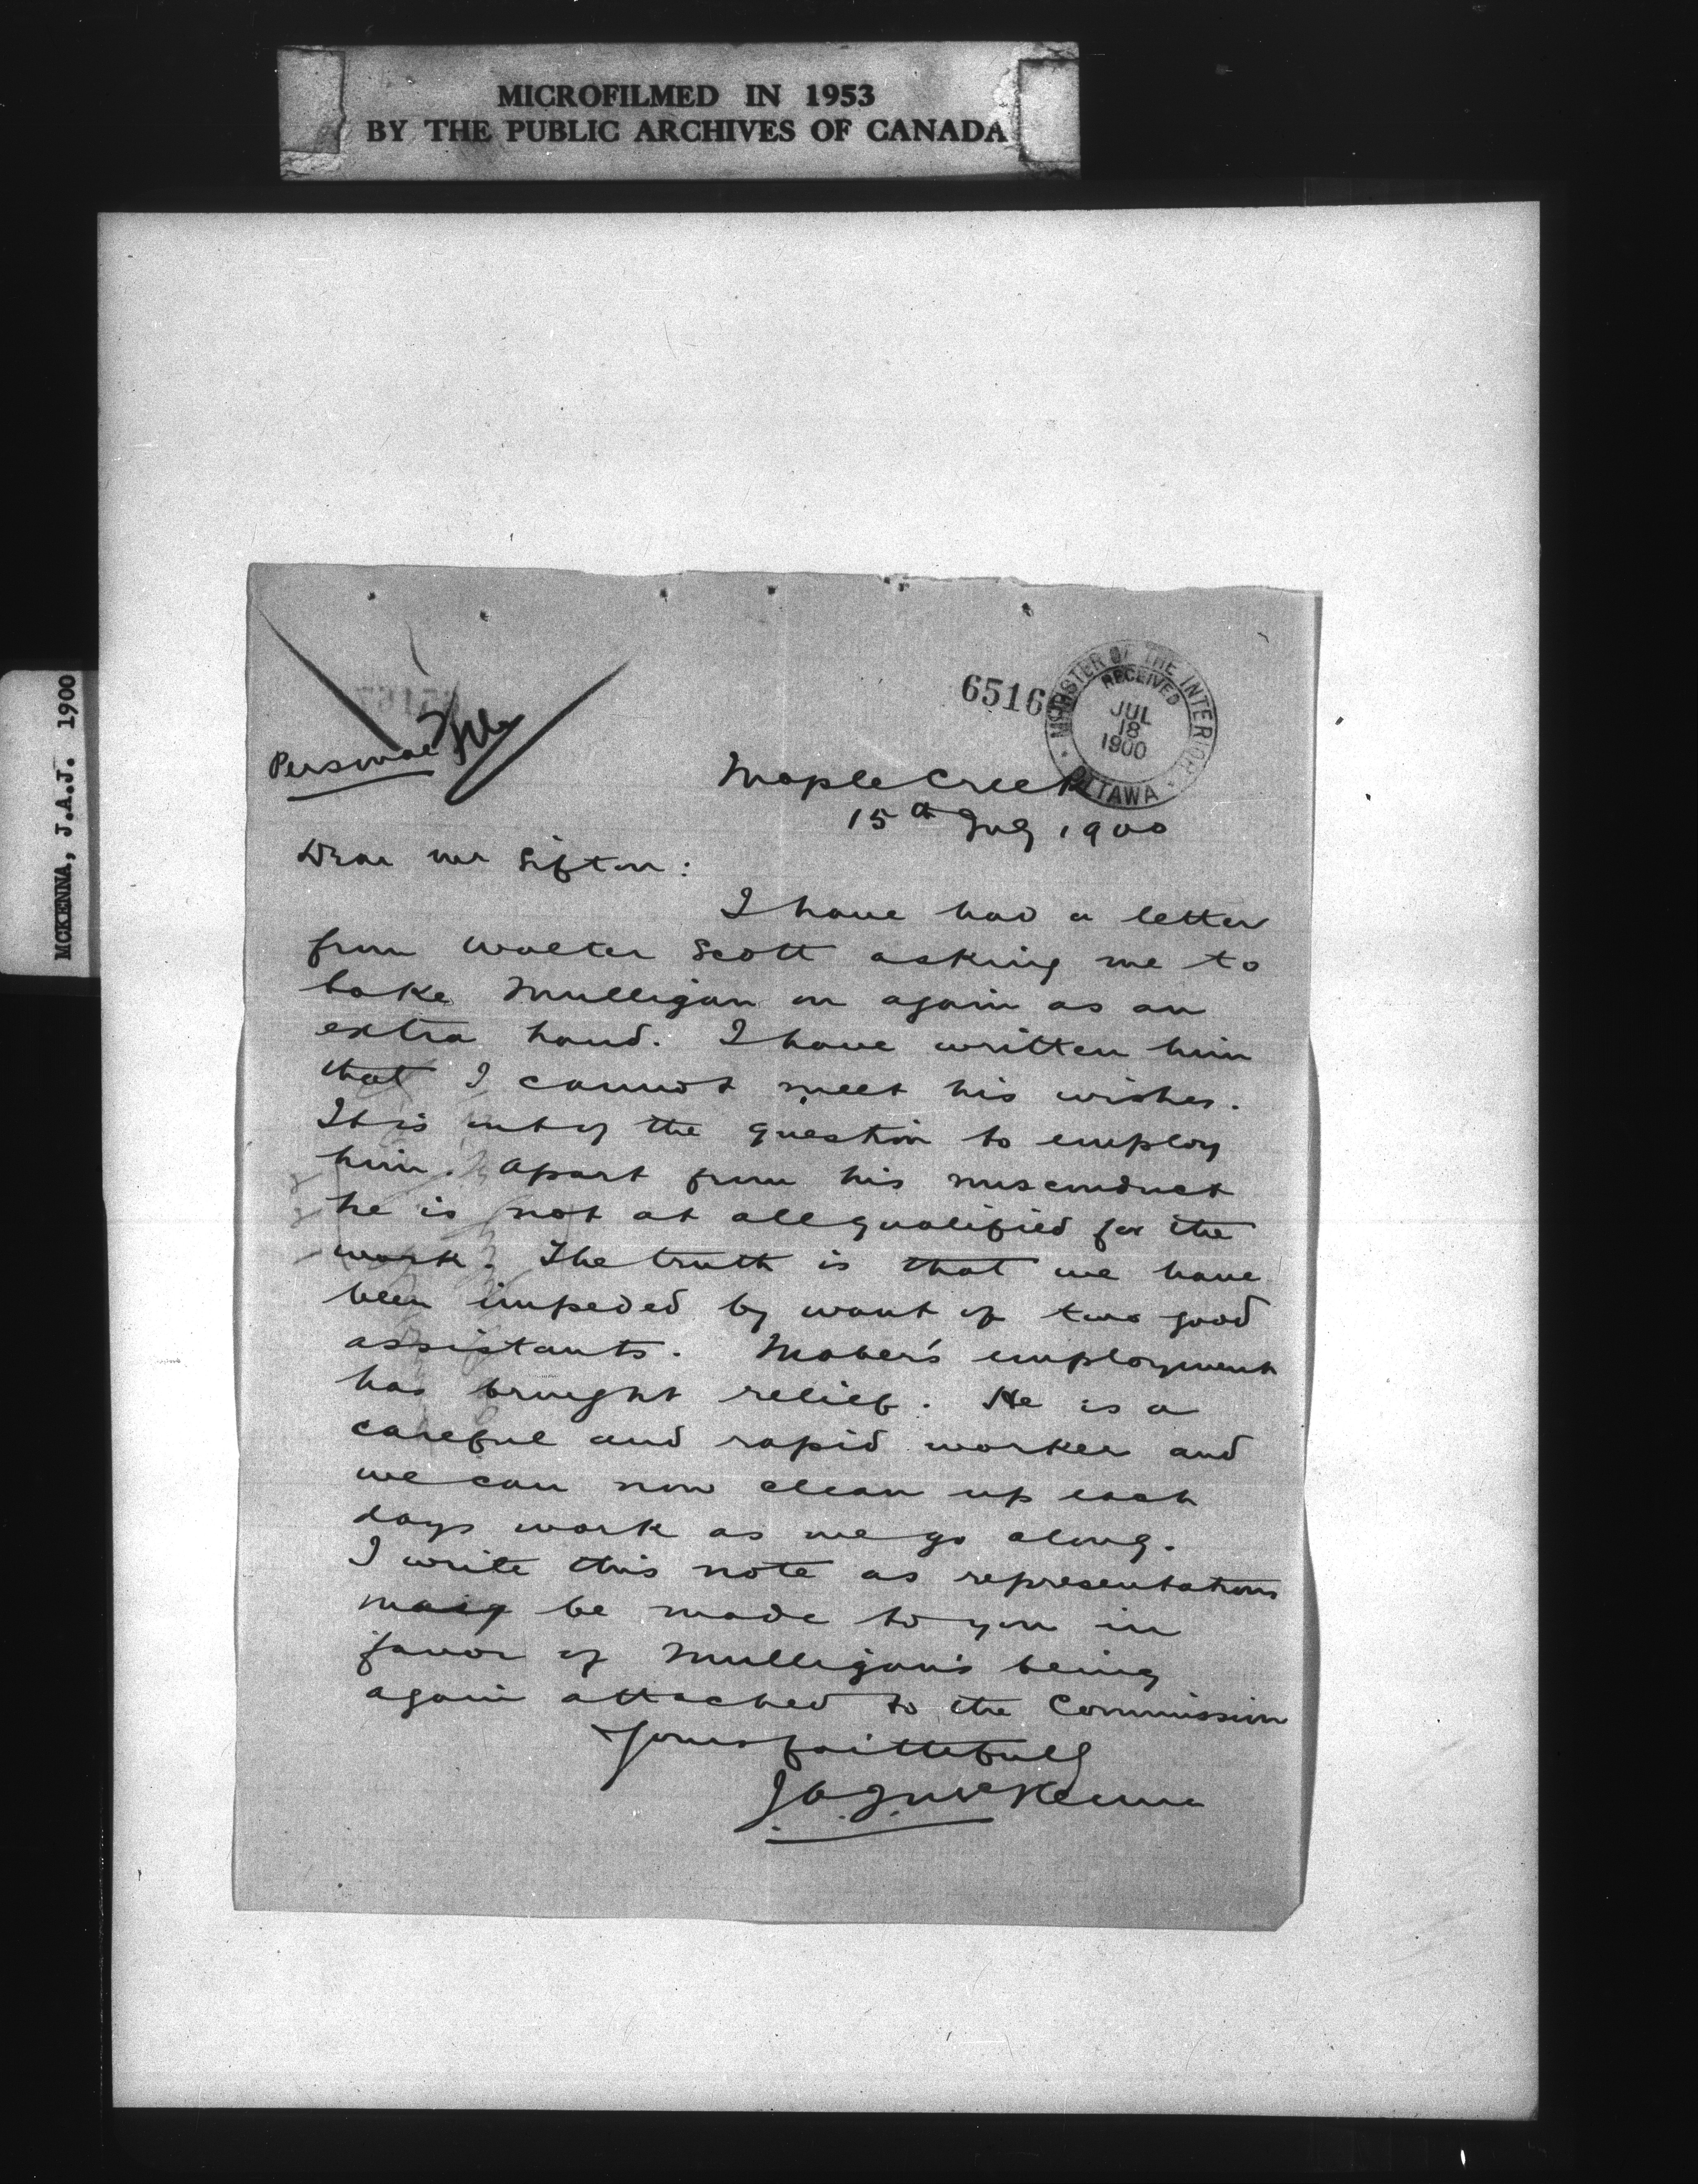 MICROFILMED IN 1953
BY THE PUBLIC ARCHIVES OF CANADA
MCKENNA, J.A.J. 1900
65160
MINISTER OF THE INTERIOR
RECEIVED
JUL
18
1900
OTTAWA
Personal File
Maple Creek
15th July 1900
Dear Mr Sifton:
I have had a letter
from Walter Scott asking me to
take Mulligan on again as an
extra hand. I have written him
that I cannot meet his wishes.
It is out of the question to employ
him. Apart from his misconduct
he is not at all qualified for the
work. The truth is that we have
been impeded by want of two good
assistants. Mober's employment
has brought relief. He is a
careful and rapid worker and
we can now clean up each
days work as we go along.
I write this note as representations
may be made to you in
favor of Mulligan's being
again attached to the Commission
Yours faithfully
J.A.J. McKenna